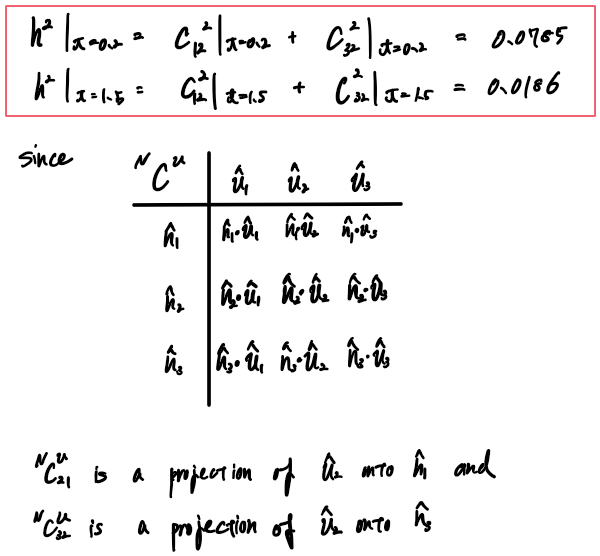 h²|x=0.2 = C₁₂²|x=0.2 + C₃₂²|x=0.2 = 0.0785
h²|x=1.5 = C₁₂²|x=1.5 + C₃₂²|x=1.5 = 0.0186
since
ᴺCᵁ û₁ û₂ û₃
n̂₁ n̂₁·û₁ n̂₁·û₂ n̂₁·û₃
n̂₂ n̂₂·û₁ n̂₂·û₂ n̂₂·û₃
n̂₃ n̂₃·û₁ n̂₃·û₂ n̂₃·û₃
ᴺC₂₁ᵁ is a projection of û₂ onto n̂₁ and
ᴺC₃₂ᵁ is a projection of û₂ onto n̂₃